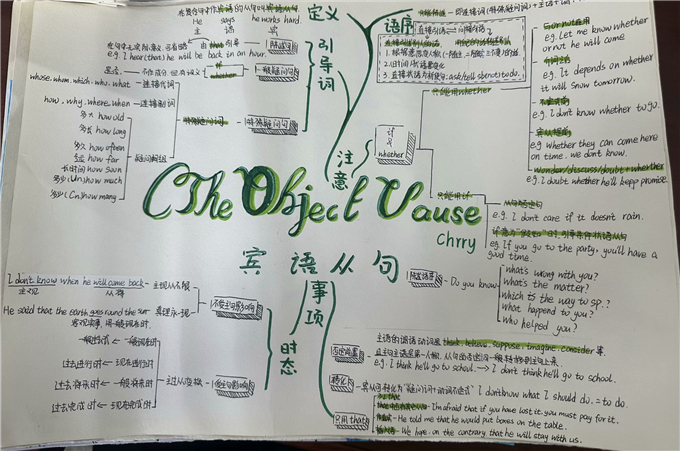 在复合句中作宾语的从句叫宾语从句
He says he works hard.
主 谓 宾
定义
引导词
由that引导
陈述句
e.g. I hear (that) he will be back in an hour.
if
whether
一般疑问句
whose. whom. which. who. what — 连接代词
how. why. where. when — 连接副词
特殊疑问句
多大 how old
多长 how long
多久 how often
how far
how soon
(Un) how much
(Cn) how many
疑问词组
语序
注意
if
&
whether
只能用whether
e.g. Let me know whether
or not he will come
e.g. It depends on whether
it will snow tomorrow.
e.g. I don't know whether to go.
e.g. whether they can come here
on time. we don't know.
wonder/discuss/doubt + whether
e.g. I doubt whether he'll hepp promise.
只能用if
e.g. I don't care if it doesn't rain.
e.g. If you go to the party, you'll have a
good time.
(The Object Uause
Chrry
宾语从句
Do you know
what's wrong with you?
what's the matter?
which is the way to sp.?
what happend to you?
who helped you?
事项
时态
I don't know when he will come back — 主现从不限
主现 从将
He said that the earth goes round the sun
真理永现
不受主句影响
受主句影响
主过从变极
一般过去时 ← 一般现在时
过去进行时 ← 现在进行时
过去将来时 ← 一般将来时
过去完成时 ← 现在完成时
否定前移
主语的谓语动词是think, believe, suppose, imagine, consider等.
且主句主语是第一人称, 从句的否定词一般转移到主句上来.
e.g. I think he'll go to school. → I don't think he'll go to school.
简化
I don't know what I should do. = to do.
只用that
I'm afraid that if you have lost it, you must pay for it.
He told me that he would put boxes on the table.
We hope, on the contrary, that he will stay with us.